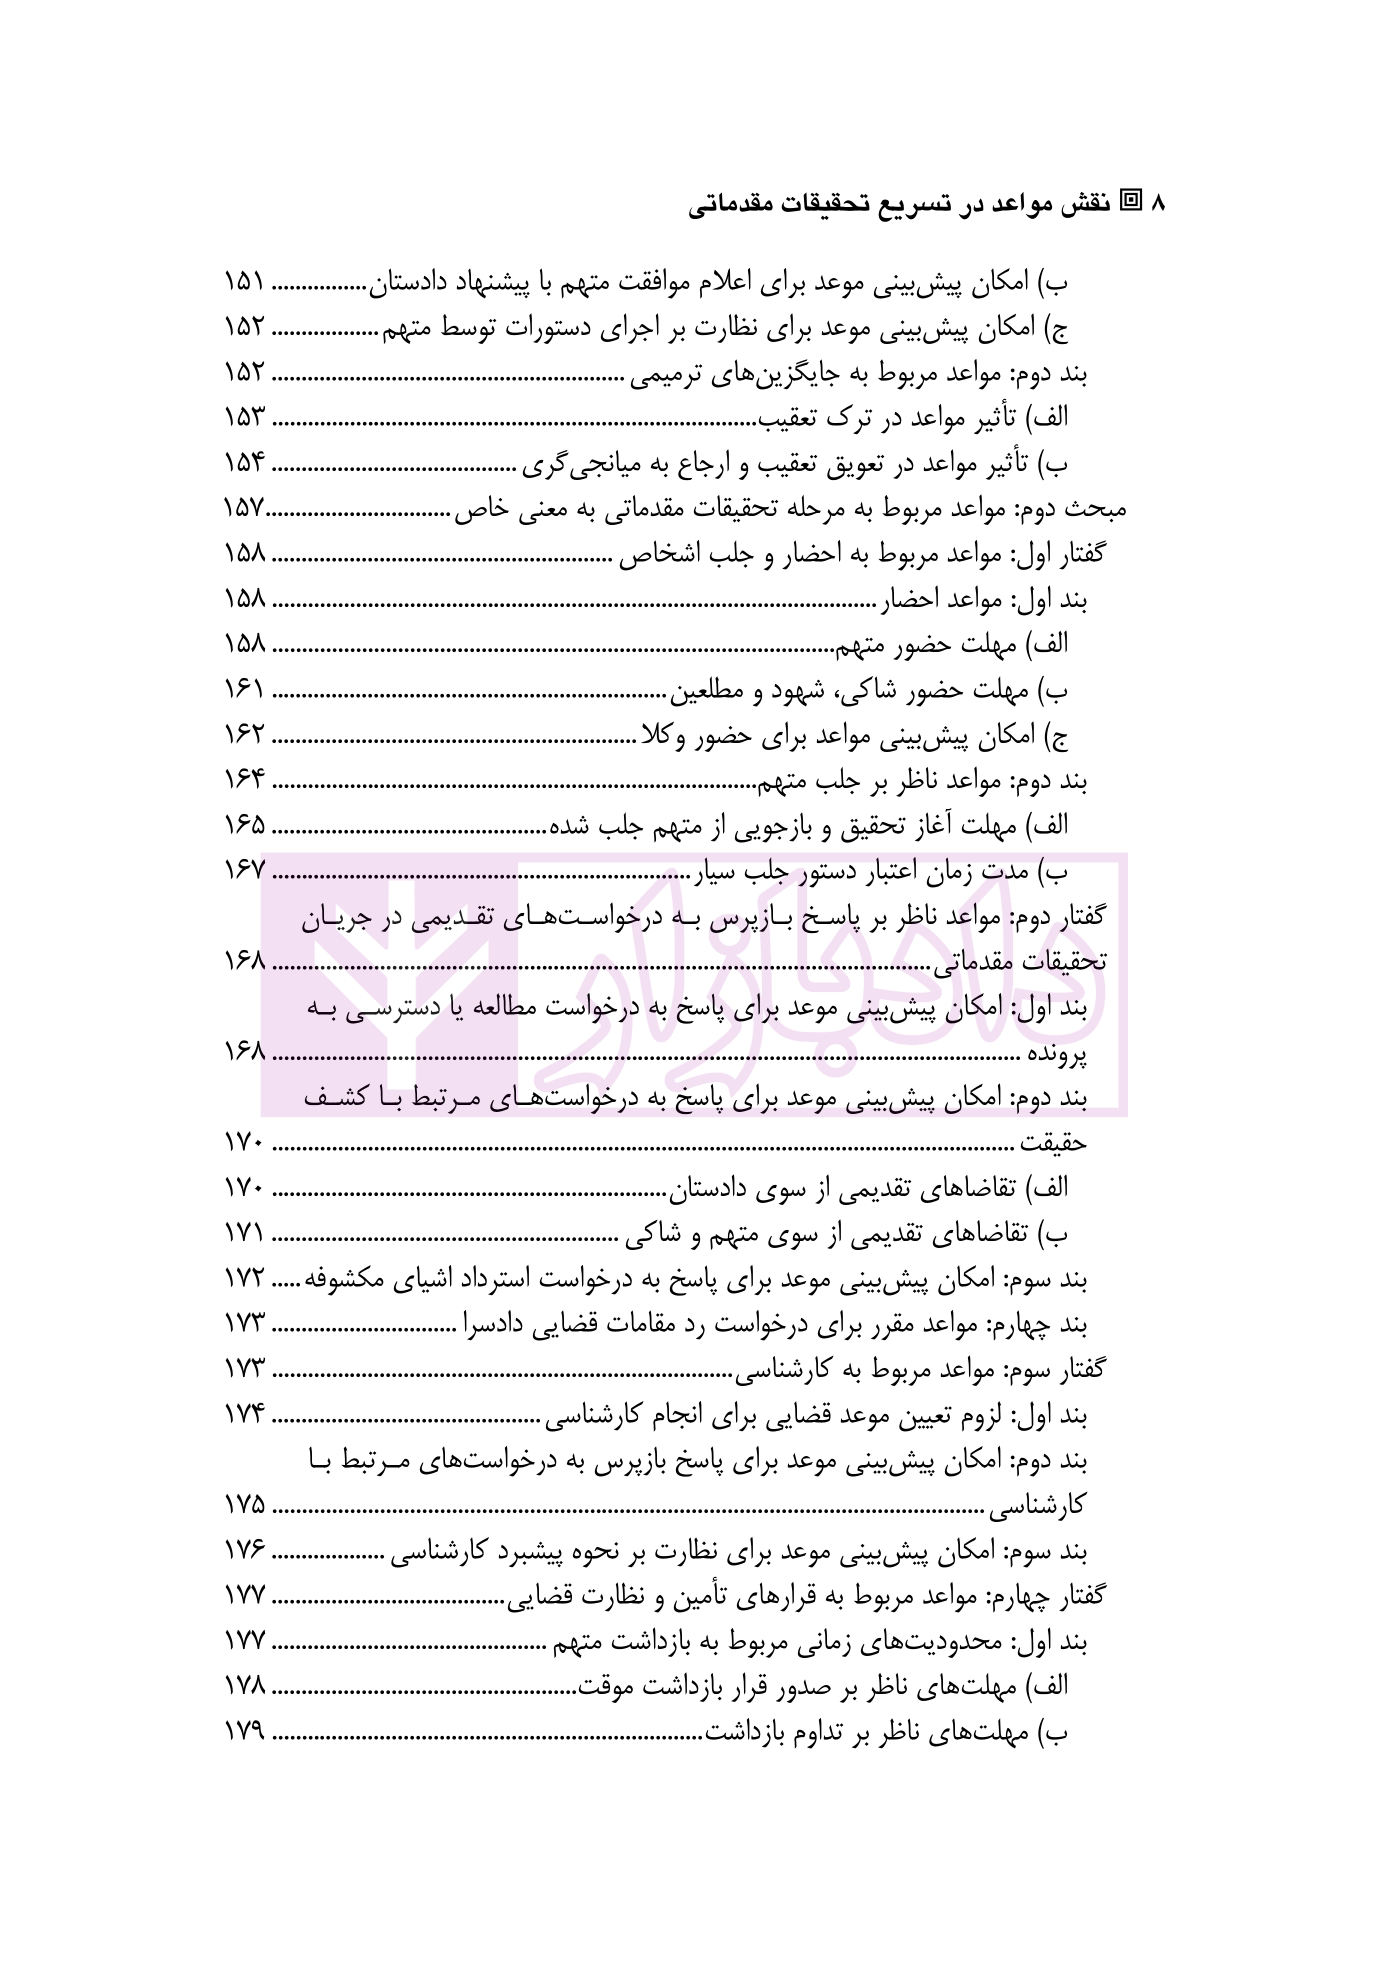 ۸ نقش مواعد در تسریع تحقیقات مقدماتی
ب) امکان پیش‌بینی موعد برای اعلام موافقت متهم با پیشنهاد دادستان................ ۱۵۱
ج) امکان پیش‌بینی موعد برای نظارت بر اجرای دستورات توسط متهم.................. ۱۵۲
بند دوم: مواعد مربوط به جایگزین‌های ترمیمی ........................................................... ۱۵۲
الف) تأثیر مواعد در ترک تعقیب................................................................................. ۱۵۳
ب) تأثیر مواعد در تعویق تعقیب و ارجاع به میانجی‌گری ......................................... ۱۵۴
مبحث دوم: مواعد مربوط به مرحله تحقیقات مقدماتی به معنی خاص...............................۱۵۷
گفتار اول: مواعد مربوط به احضار و جلب اشخاص ......................................................... ۱۵۸
بند اول: مواعد احضار..................................................................................................... ۱۵۸
الف) مهلت حضور متهم.............................................................................................. ۱۵۸
ب) مهلت حضور شاکی، شهود و مطلعین.................................................................. ۱۶۱
ج) امکان پیش‌بینی مواعد برای حضور وکلا............................................................. ۱۶۲
بند دوم: مواعد ناظر بر جلب متهم................................................................................. ۱۶۴
الف) مهلت آغاز تحقیق و بازجویی از متهم جلب شده.............................................. ۱۶۵
ب) مدت زمان اعتبار دستور جلب سیار...................................................................... ۱۶۷
گفتار دوم: مواعد ناظر بر پاسـخ بـازپرس بـه درخواسـت‌هـای تقـدیمی در جریـان
تحقیقات مقدماتی.............................................................................................................. ۱۶۸
بند اول: امکان پیش‌بینی موعد برای پاسخ به درخواست مطالعه یا دسترسـی بـه
پرونده ............................................................................................................................. ۱۶۸
بند دوم: امکان پیش‌بینی موعد برای پاسخ به درخواست‌هـای مـرتبط بـا کشـف
حقیقت ............................................................................................................................ ۱۷۰
الف) تقاضاهای تقدیمی از سوی دادستان.................................................................. ۱۷۰
ب) تقاضاهای تقدیمی از سوی متهم و شاکی .......................................................... ۱۷۱
بند سوم: امکان پیش‌بینی موعد برای پاسخ به درخواست استرداد اشیای مکشوفه..... ۱۷۲
بند چهارم: مواعد مقرر برای درخواست رد مقامات قضایی دادسرا ............................... ۱۷۳
گفتار سوم: مواعد مربوط به کارشناسی............................................................................. ۱۷۳
بند اول: لزوم تعیین موعد قضایی برای انجام کارشناسی............................................. ۱۷۴
بند دوم: امکان پیش‌بینی موعد برای پاسخ بازپرس به درخواست‌های مـرتبط بـا
کارشناسی....................................................................................................................... ۱۷۵
بند سوم: امکان پیش‌بینی موعد برای نظارت بر نحوه پیشبرد کارشناسی ................... ۱۷۶
گفتار چهارم: مواعد مربوط به قرارهای تأمین و نظارت قضایی....................................... ۱۷۷
بند اول: محدودیت‌های زمانی مربوط به بازداشت متهم .............................................. ۱۷۷
الف) مهلت‌های ناظر بر صدور قرار بازداشت موقت................................................... ۱۷۸
ب) مهلت‌های ناظر بر تداوم بازداشت........................................................................ ۱۷۹
دادبازار